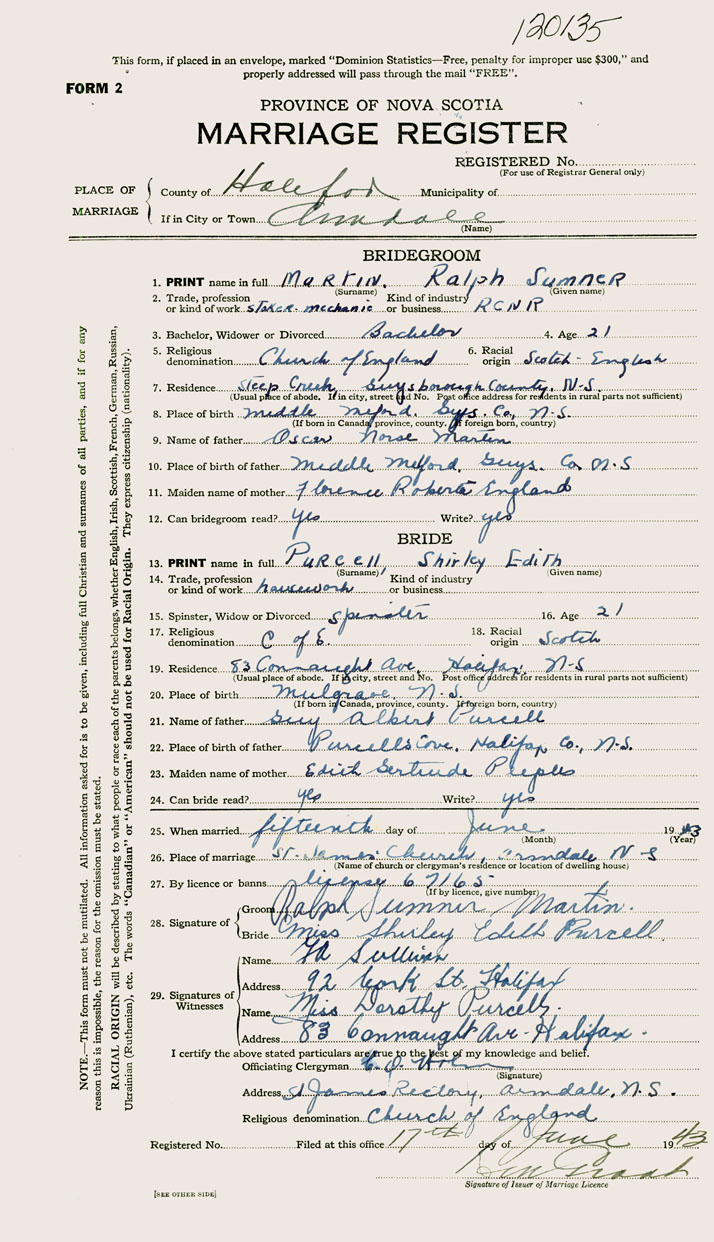 120135
This form, if placed in an envelope, marked "Dominion Statistics—Free, penalty for improper use $300," and
properly addressed will pass through the mail "FREE".
FORM 2
PROVINCE OF NOVA SCOTIA
MARRIAGE REGISTER
REGISTERED No.
(For use of Registrar General only)
PLACE OF MARRIAGE
County of Halifax Municipality of
If in City or Town Armdale
(Name)
BRIDEGROOM
1. PRINT name in full MARTIN, Ralph Sumner
(Surname) (Given name)
2. Trade, profession or kind of work stoker mechanic Kind of industry or business RCNR
3. Bachelor, Widower or Divorced Bachelor 4. Age 21
5. Religious denomination Church of England 6. Racial origin Scotch-English
7. Residence Steep Creek, Guysborough County, N.S.
(Usual place of abode. If in city, street and No. Post office address for residents in rural parts not sufficient)
8. Place of birth Middle Milford, Guys. Co, N.S.
(If born in Canada, province, county. If foreign born, country)
9. Name of father Oscar Norse Martin
10. Place of birth of father Middle Melford, Guys. Co N.S
11. Maiden name of mother Florence Roberta England
12. Can bridegroom read? yes Write? yes
BRIDE
13. PRINT name in full PURCEll, Shirley Edith
(Surname) (Given name)
14. Trade, profession or kind of work housework Kind of industry or business
15. Spinster, Widow or Divorced spinster 16. Age 21
17. Religious denomination C of E. 18. Racial origin Scotch
19. Residence 83 Connaught Ave, Halifax, N-S
(Usual place of abode. If in city, street and No. Post office address for residents in rural parts not sufficient)
20. Place of birth Mulgrave, N.S.
(If born in Canada, province, county. If foreign born, country)
21. Name of father Guy Albert Purcell
22. Place of birth of father Purcell's Cove, Halifax Co., N.S.
23. Maiden name of mother Edith Gertrude Peeples
24. Can bride read? yes Write? yes
25. When married fifteenth day of June 1943
(Month) (Year)
26. Place of marriage St. James Church, Armdale N S
(Name of church or clergyman's residence or location of dwelling house)
27. By licence or banns license 67165
(If by licence, give number)
28. Signature of
Groom Ralph Sumner Martin.
Bride Miss Shirley Edith Purcell.
29. Signatures of Witnesses
Name Sullivan
Address 92 York St. Halifax
Name Miss Dorothy Purcell.
Address 83 Connaught Ave-Halifax.
I certify the above stated particulars are true to the best of my knowledge and belief.
Officiating Clergyman
(Signature)
Address St James Rectory, Armdale, N.S.
Religious denomination Church of England
Registered No. Filed at this office 17th day of June 1943
Signature of Issuer of Marriage Licence
[SEE OTHER SIDE]
NOTE.—This form must not be mutilated. All information asked for is to be given, including full Christian and surnames of all parties, and if for any
reason this is impossible, the reason for the omission must be stated.
RACIAL ORIGIN will be described by stating to what people or race each of the parents belongs, whether English, Irish, Scottish, French, German, Russian,
Ukrainian (Ruthenian), etc. The words "Canadian" or "American" should not be used for Racial Origin. They express citizenship (nationality).